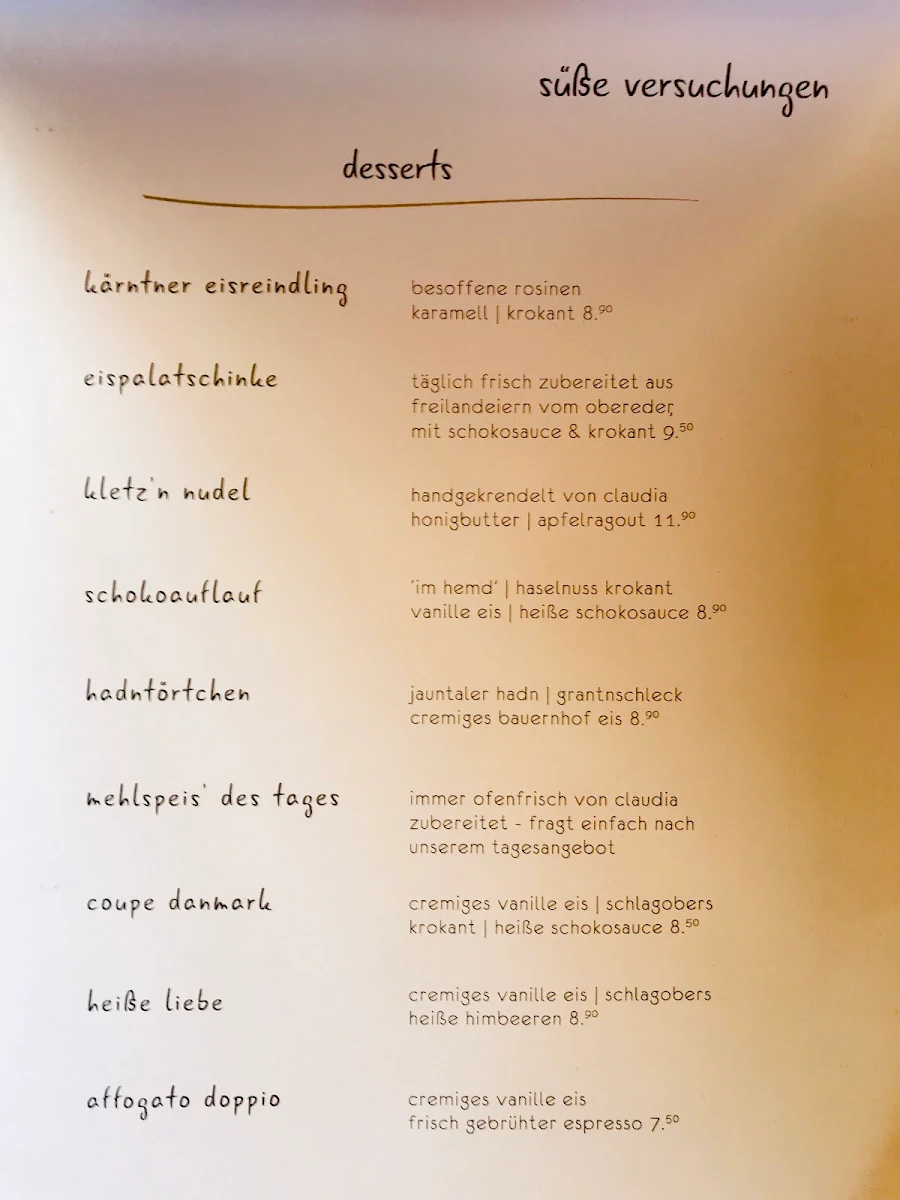 süße versuchungen
desserts
kärntner eisreindling
besoffene rosinen
karamell | krokant 8.90
eispalatschinke
täglich frisch zubereitet aus
freilandeiern vom obereder,
mit schokosauce & krokant 9.50
kletz'n nudel
handgekrendelt von claudia
honigbutter | apfelragout 11.90
schokoauflauf
'im hemd' | haselnuss krokant
vanille eis | heiße schokosauce 8.90
hadntörtchen
jauntaler hadn | grantnschleck
cremiges bauernhof eis 8.90
mehlspeis' des tages
immer ofenfrisch von claudia
zubereitet - fragt einfach nach
unserem tagesangebot
coupe danmark
cremiges vanille eis | schlagobers
krokant | heiße schokosauce 8.50
heiße liebe
cremiges vanille eis | schlagobers
heiße himbeeren 8.90
affogato doppio
cremiges vanille eis
frisch gebrühter espresso 7.50